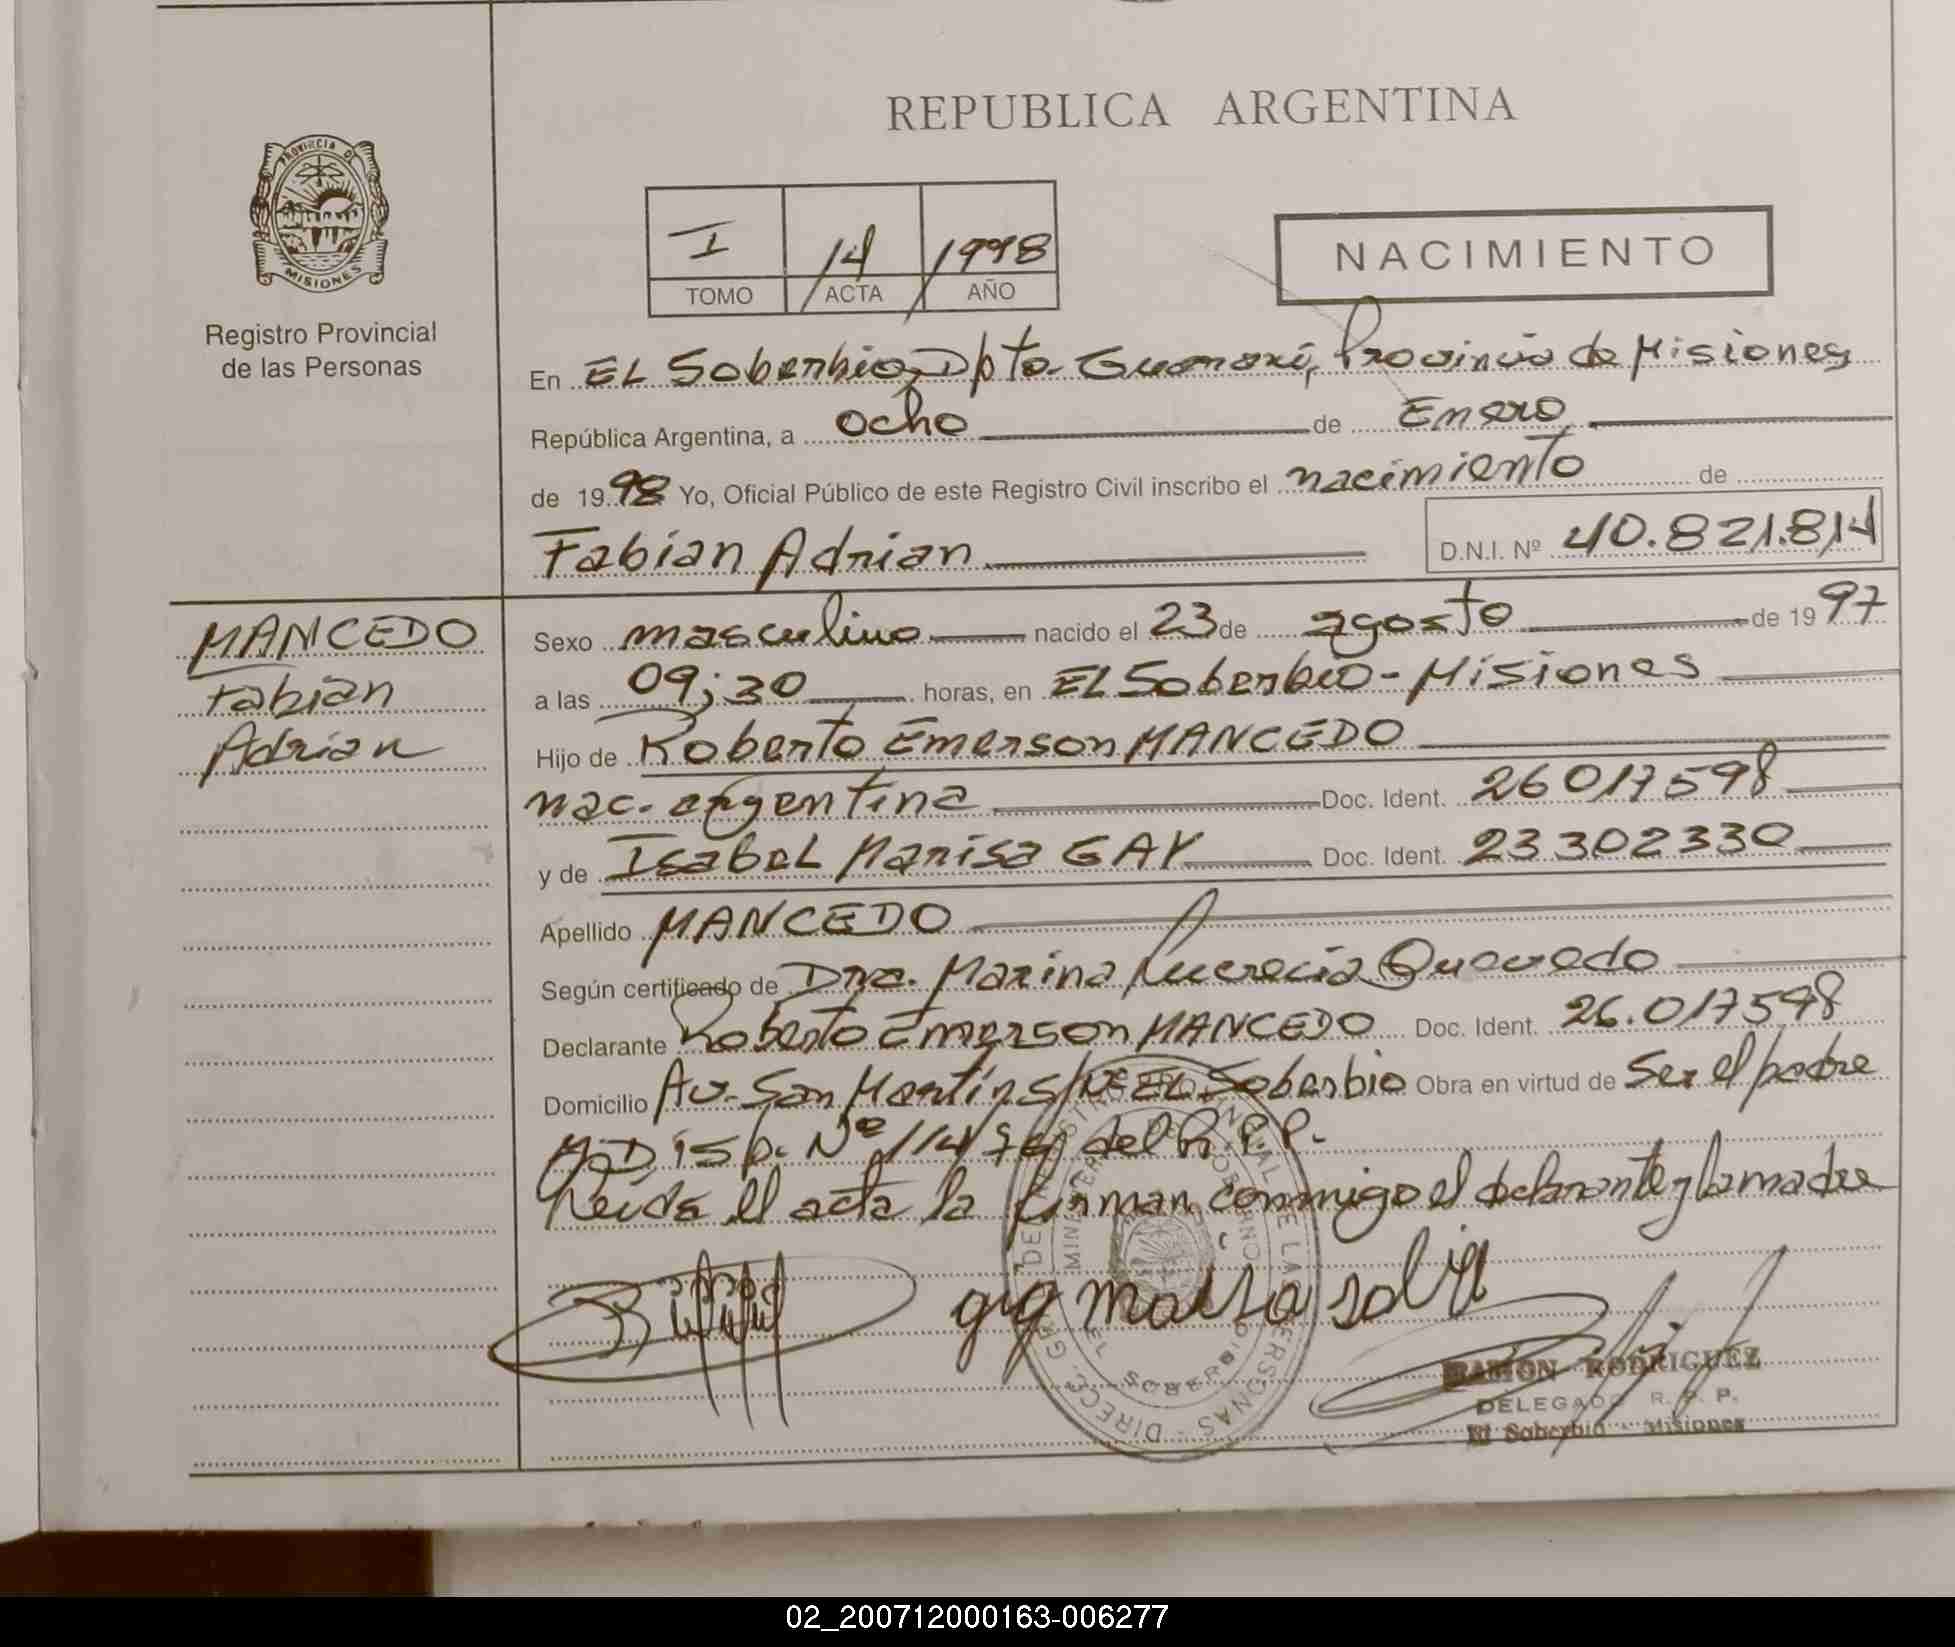 REPUBLICA ARGENTINA
PROVINCIA DE
MISIONES
Registro Provincial
de las Personas
I 14 1998
TOMO ACTA AÑO
NACIMIENTO
En EL Soberbio, Dpto. Guaraní, Provincia de Misiones
República Argentina, a ocho de Enero
de 1998 Yo, Oficial Público de este Registro Civil inscribo el nacimiento de
Fabian Adrian D.N.I. Nº 40.821.814
MANCEDO
Fabian
Adrian
Sexo masculino nacido el 23 de agosto de 1997
a las 09;30 horas, en EL Soberbio - Misiones
Hijo de Roberto Emerson MANCEDO
nac. argentina Doc. Ident. 26017598
y de Isabel Marisa GAY Doc. Ident. 23302330
Apellido MANCEDO
Según certificado de Dra. Marina Lucrecia Quevedo
Declarante Roberto Emerson MANCEDO Doc. Ident. 26.017598
Domicilio Av. San Martín S/Nº EL Soberbio Obra en virtud de ser el padre
Disp. Nº del R.P.P.
Leída el acta la firman conmigo el declarante y la madre
RAMON RODRIGUEZ
DELEGADO R. P. P.
El Soberbio - Misiones
02_200712000163-006277